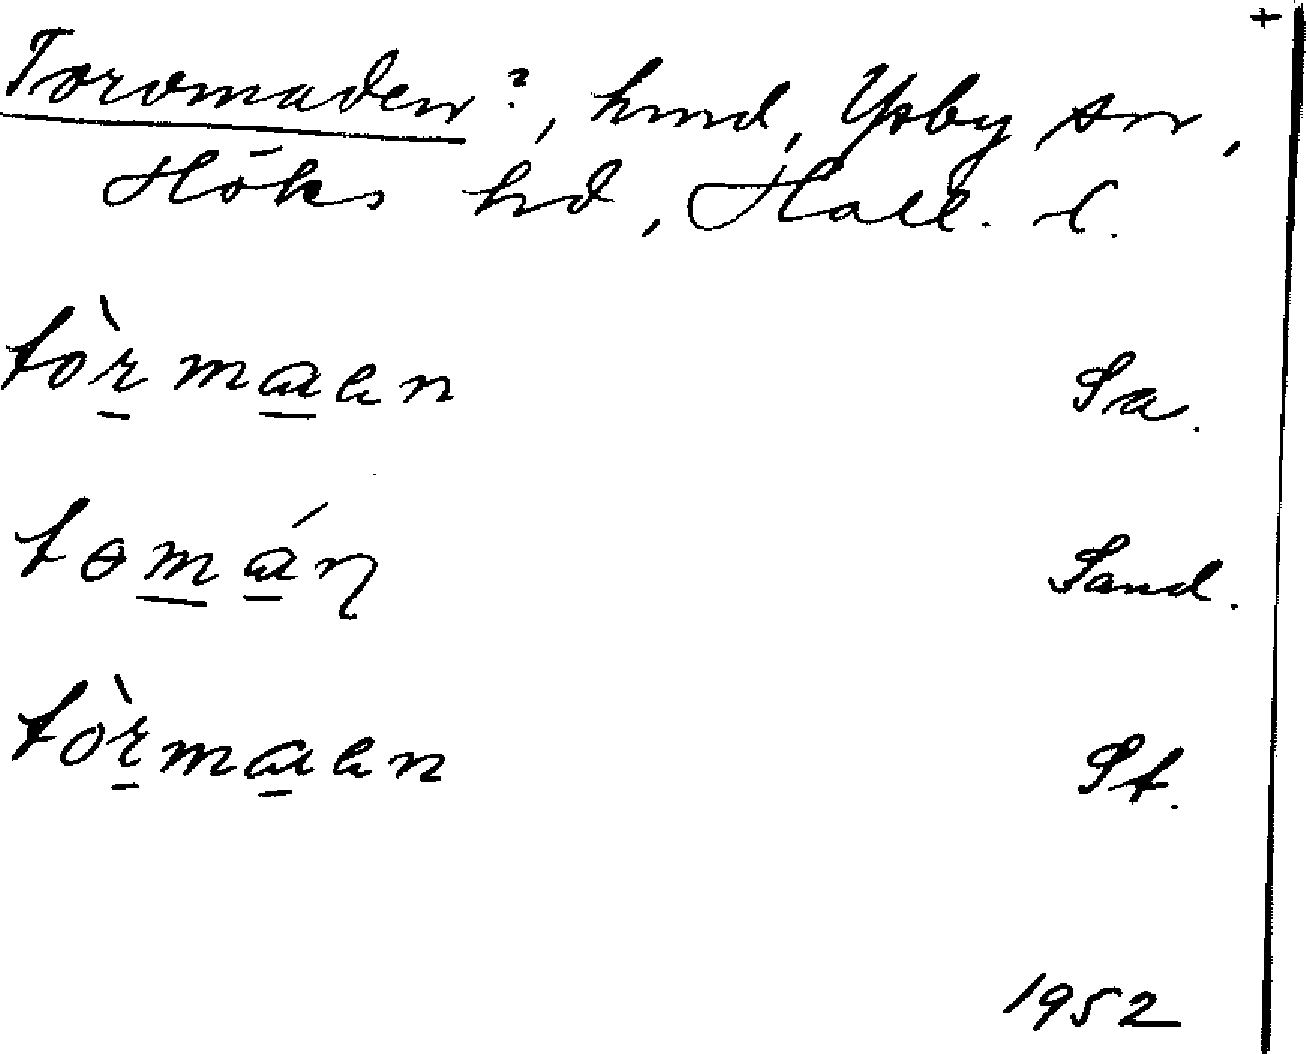 +
Torvmaden?, hmd, Ysby sn,
Höks hd, Hall. l.
tòrmaen Sa.
tomán Sand.
tòrmaen St.
1952